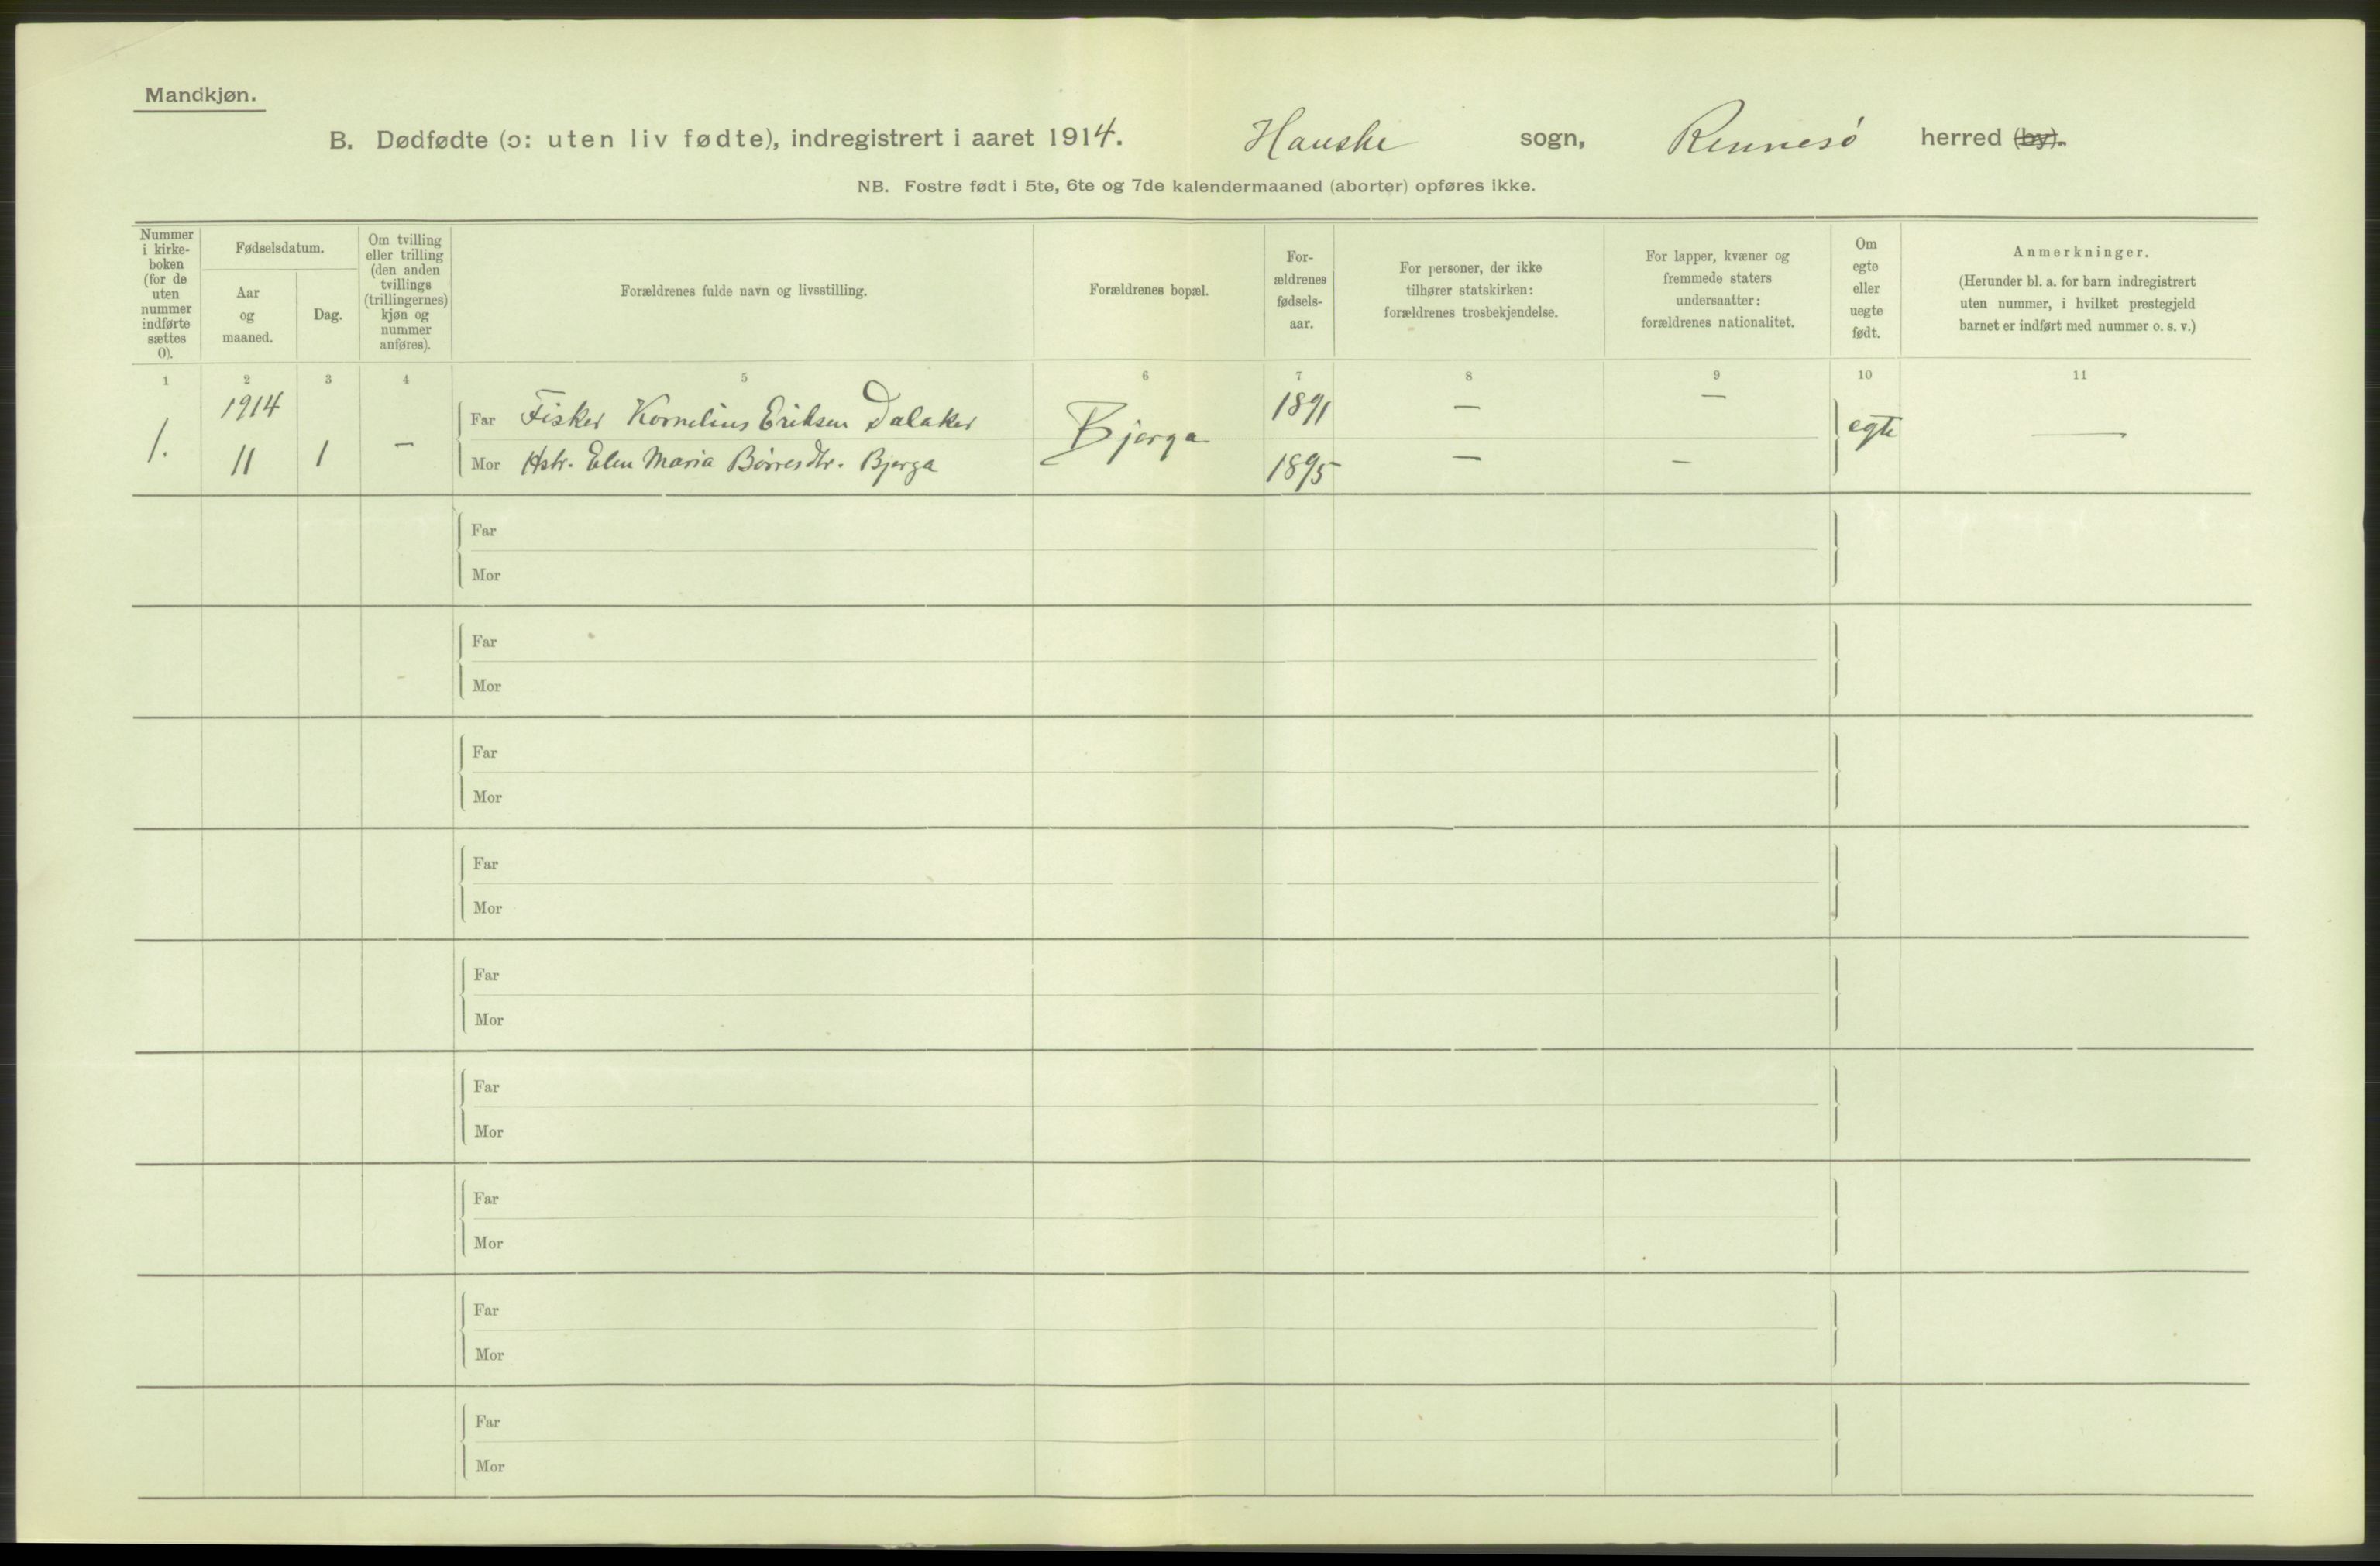 Mandkjøn.
B. Dødfødte (ɔ: uten liv fødte), indregistrert i aaret 1914. Hauske sogn, Rennesö herred (by).
NB. Fostre født i 5te, 6te og 7de kalendermaaned (aborter) opføres ikke.
Nummer
i kirke-
boken
(for de
uten
nummer
indførte
sættes
0).
Fødselsdatum.
Aar
og
maaned.
Dag.
Om tvilling
eller trilling
(den anden
tvillings
(trillingernes)
kjøn og
nummer
anføres).
Forældrenes fulde navn og livsstilling.
Forældrenes bopæl.
For-
ældrenes
fødsels-
aar.
For personer, der ikke
tilhører statskirken:
forældrenes trosbekjendelse.
For lapper, kvæner og
fremmede staters
undersaatter:
forældrenes nationalitet.
Om
egte
eller
uegte
født.
Anmerkninger.
(Herunder bl. a. for barn indregistrert
uten nummer, i hvilket prestegjeld
barnet er indført med nummer o. s. v.)
1 2 3 4 5 6 7 8 9 10 11
1914
1. 11 1 —
Far Fisker Kornelius Eriksen Dalaker
Mor Hstr. Elen Maria Börresdtr. Bjerga
Bjerga
1891 — —
1895 — —
egte —
Far
Mor
Far
Mor
Far
Mor
Far
Mor
Far
Mor
Far
Mor
Far
Mor
Far
Mor
Far
Mor